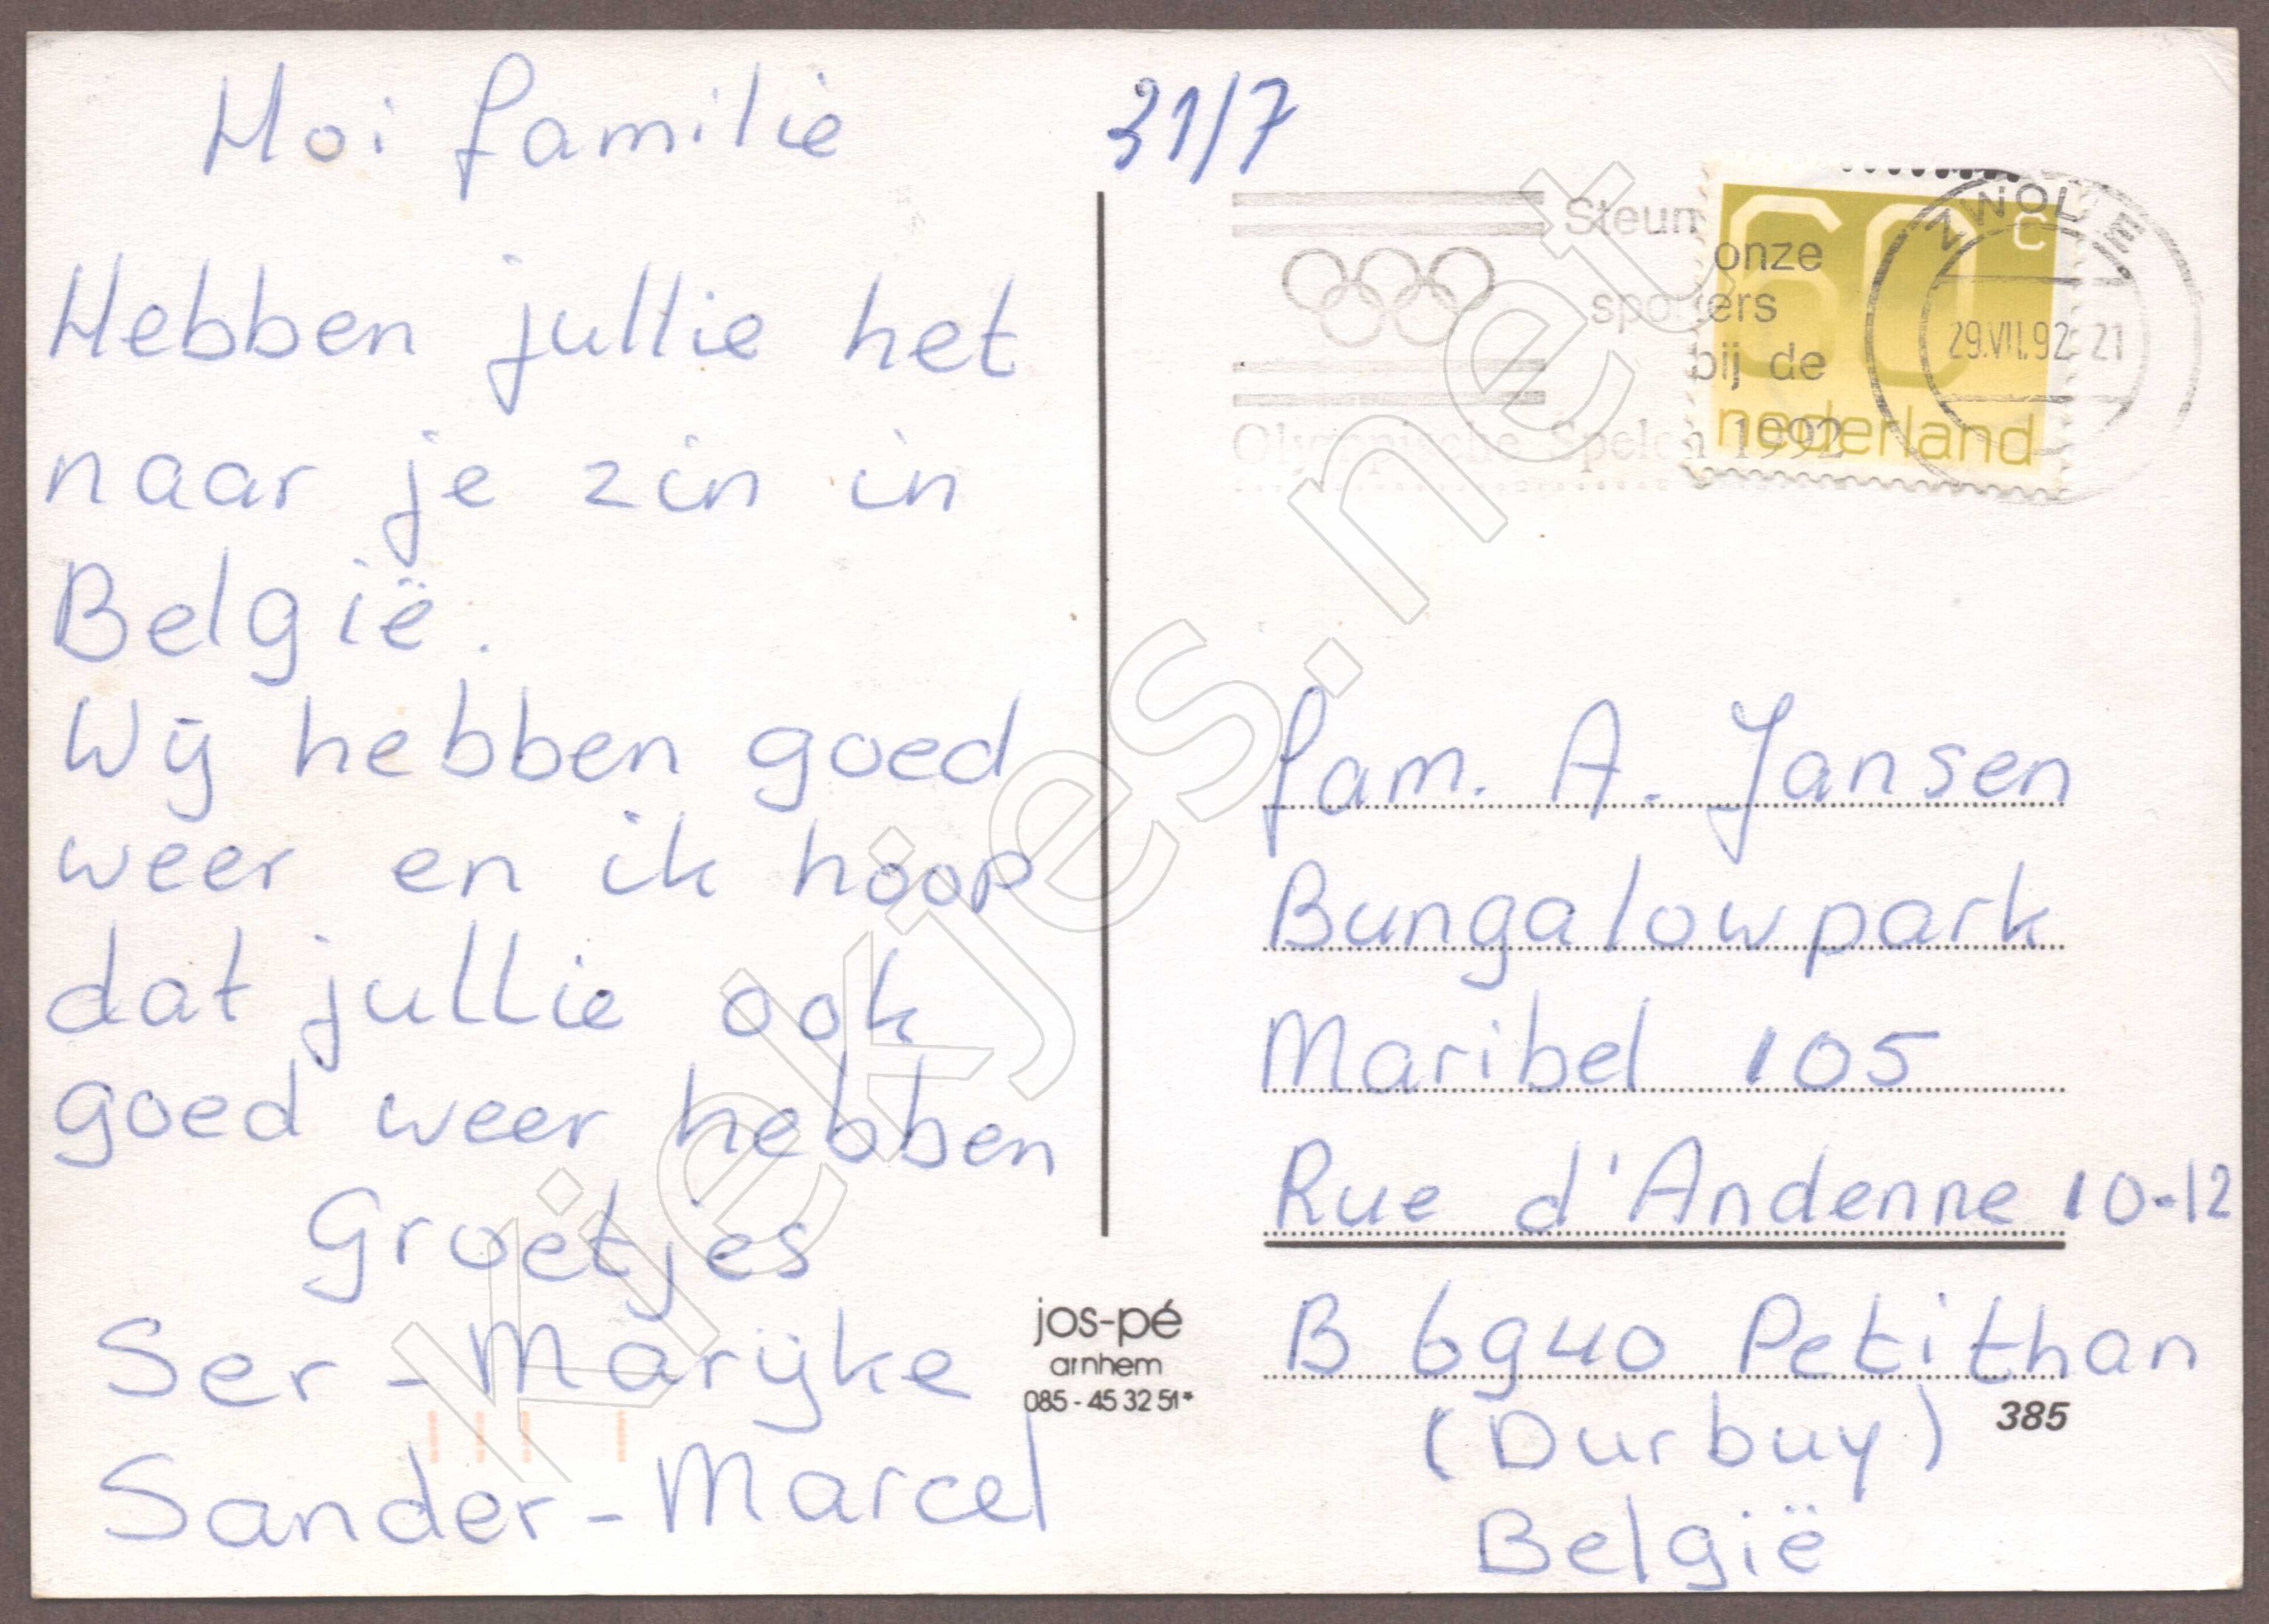 Hoi familie
31/7
Hebben jullie het
naar je zin in
België.
Wij hebben goed
weer en ik hoop
dat jullie ook
goed weer hebben
Groetjes
Ser - Marijke
Sander - Marcel
Steun
onze
sporters
bij de
Olympische Spelen 1992
60 c
nederland
ZWOLLE
29.VII.92 21
fam. A. Jansen
Bungalowpark
Maribel 105
Rue d'Andenne 10-12
B 6940 Petithan
(Durbuy)
België
jos-pé
arnhem
085 - 45 32 51*
385
Kiekjes.net